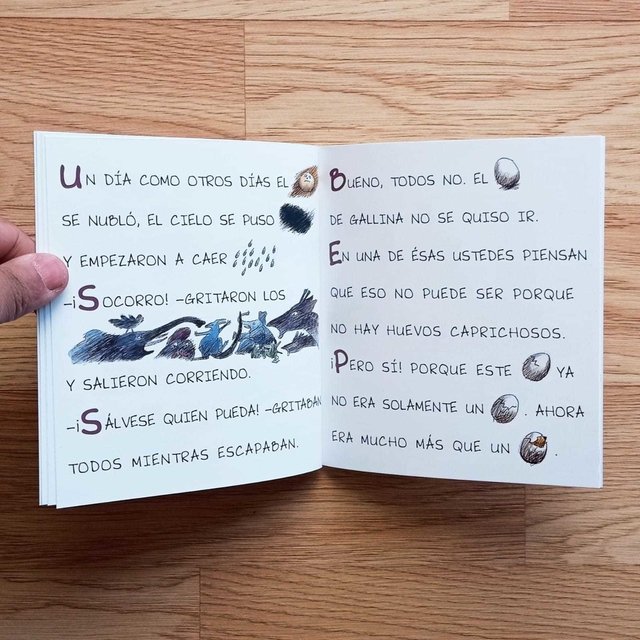 UN DÍA COMO OTROS DÍAS EL
SE NUBLÓ, EL CIELO SE PUSO
Y EMPEZARON A CAER
-¡SOCORRO! -GRITARON LOS
Y SALIERON CORRIENDO.
-¡SÁLVESE QUIEN PUEDA! -GRITABAN
TODOS MIENTRAS ESCAPABAN.
BUENO, TODOS NO. EL
DE GALLINA NO SE QUISO IR.
EN UNA DE ÉSAS USTEDES PIENSAN
QUE ESO NO PUEDE SER PORQUE
NO HAY HUEVOS CAPRICHOSOS.
¡PERO SÍ! PORQUE ESTE YA
NO ERA SOLAMENTE UN . AHORA
ERA MUCHO MÁS QUE UN .